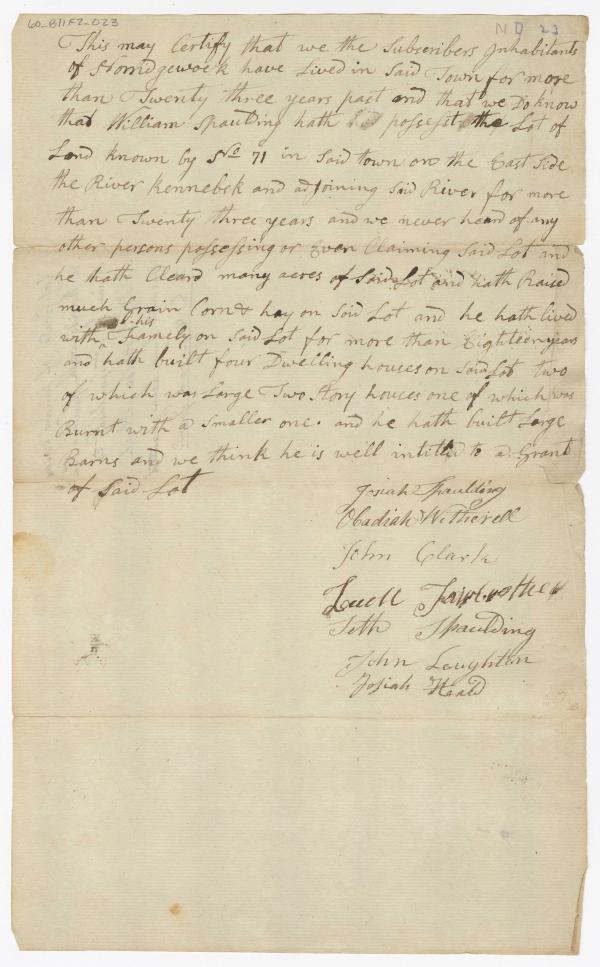 60_B11F2_023
N D 23
This may Certify that we the Subscribers Inhabitants
of Norridgewock have Lived in Said Town for more
than Twenty three years past and that we Do know
that William Spaulding hath possesst the Lot of
Land known by No 71 in Said town on the East Side
the River Kennebek and adjoining Said River for more
than Twenty three years and we never heard of any
other persons possessing or Even Claiming Said Lot and
he hath Cleard many acres of Said Lot and hath Raised
much Grain Corn & hay on Said Lot and he hath lived
with his famely on Said Lot for more than Eighteen years
and hath built four Dwelling houses on Said Lot two
of which was Large Two Story houses one of which was
Burnt with a Smaller one. and he hath built Large
Barns and we think he is well intitled to a Grant
of Said Lot
Josiah Spaulding
Obadiah Witherell
John Clark
Fairbrother
Seth Spaulding
John Laughton
Josiah Heald